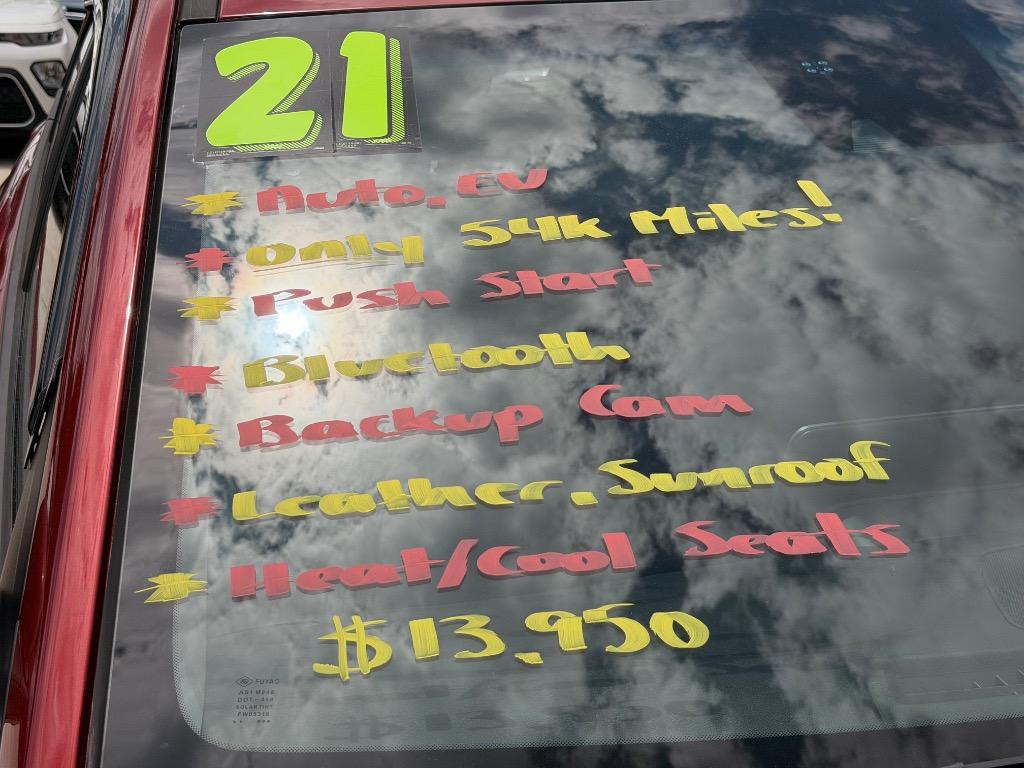 21
* Auto, EV
* Only 54k Miles!
* Push Start
* Bluetooth
* Backup Cam
* Leather, Sunroof
* Heat/Cool Seats
$13,950
FUYAO
AS1 M946
SOLARTINT